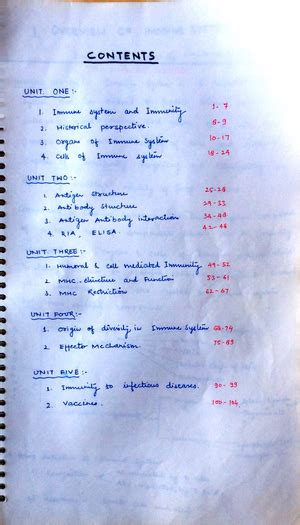 CONTENTS
UNIT ONE :-
1. Immune system and Immunity 1-7
2. Historical perspective. 8-9
3. Organs of Immune System 10-17
4. Cells of Immune system 18-24
UNIT TWO :-
1. Antigen structure 25-28
2. Antibody Structure 29-33
3. Antigen Antibody interaction 34-40
4. RIA, ELISA.
UNIT THREE :-
1. Humoral & Cell mediated Immunity 49-52
2. MHC - Structure and Function 53-61
3. MHC Restriction 62-67
UNIT FOUR :-
1. Origin of diversity in Immune System 68-74
2. Effector Mechanism.
UNIT FIVE :-
1. Immunity to infectious diseases.
2. Vaccines. 100-104